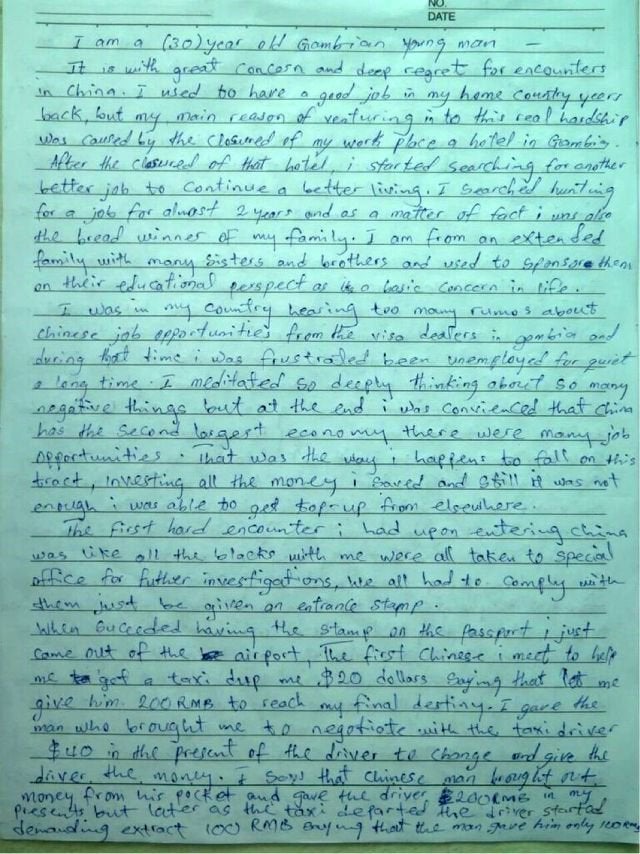 NO.
DATE
I am a (30) year old Gambian young man —
It is with great concern and deep regret for encounters
in China. I used to have a good job in my home country years
back, but my main reason of venturing in to this real hardship
was caused by the closured of my work place a hotel in Gambia.
After the closured of that hotel, i started searching for another
better job to continue a better living. I searched hunting
for a job for almost 2 years and as a matter of fact i was also
the bread winner of my family. I am from an extended
family with many sisters and brothers and used to sponsore them
on their educational perspect as a basic concern in life.
I was in my country hearing too many rumos about
chinese job opportunities from the visa dealers in gambia and
during that time i was frustraded been unemployed for quiet
a long time. I meditated so deeply thinking about so many
negative things but at the end i was convienced that China
has the second largest economy there were many job
opportunities. That was the way i happens to fall on this
tract, investing all the money i saved and still it was not
enough i was able to get top-up from elsewhere.
The first hard encounter i had upon entering china
was like all the blacks with me were all taken to special
office for futher investigations, we all had to comply with
them just be given an entrance stamp.
When succeeded having the stamp on the passport i just
came out of the airport, The first Chinese i meet to help
me get a taxi drup me $20 dollars saying that let me
give him 200 RMB to reach my final destiny. I gave the
man who brought me to negotiate with the taxi driver
$40 in the present of the driver to change and give the
driver the money. I says that chinese man brought out
money from his pocket and gave the driver 200RMB in my
presents but later as the taxi departed the driver started
demanding extract 100 RMB saying that the man gave him only 100RMB